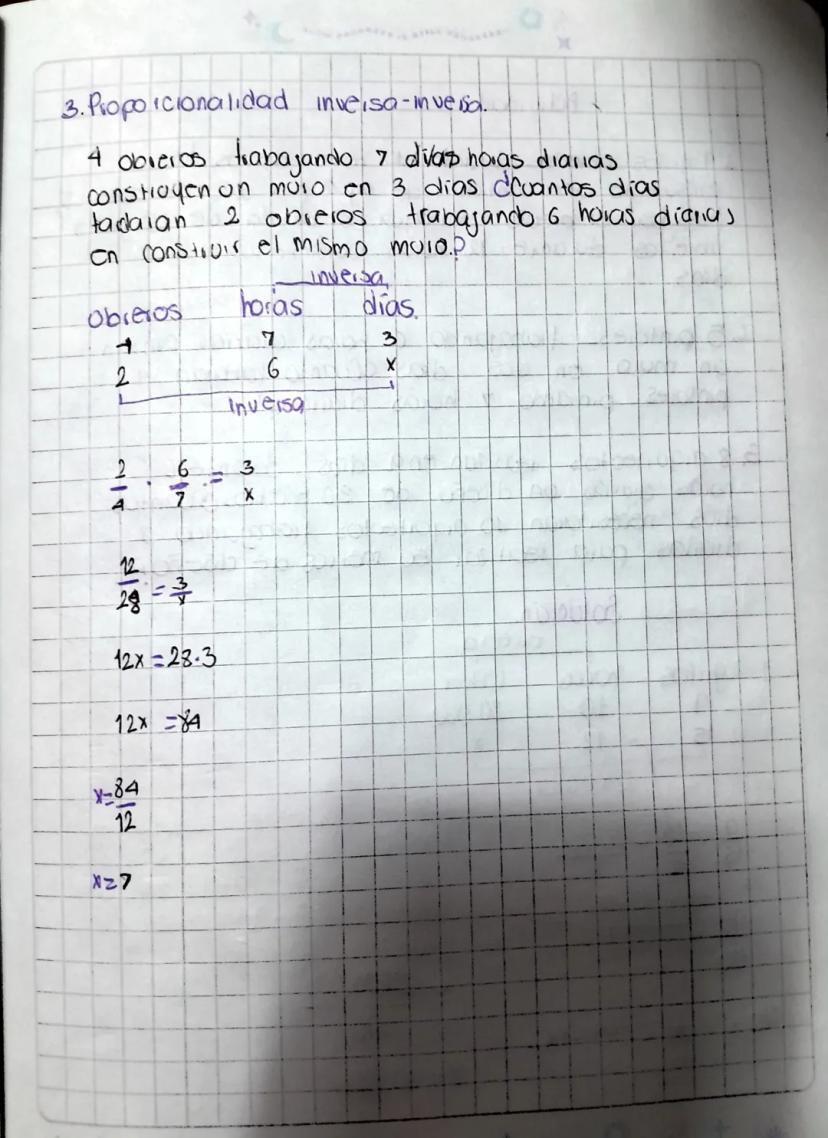 3. Proporcionalidad inversa-inversa.
4 obreros trabajando 7 horas diarias
construyen un muro en 3 dias ¿Cuantos dias
tadaran 2 obreros trabajando 6 horas diarias
en construir el mismo muro?
inversa
obreros horas días.
4 7 3
2 6 x
inversa
2/4 · 6/7 = 3/x
12/28 = 3/x
12x = 28·3
12x = 84
x = 84/12
x = 7